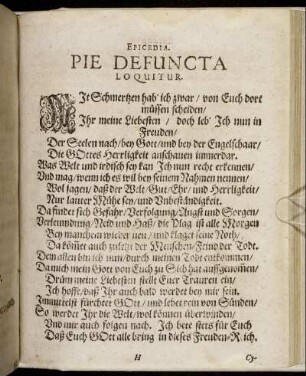 EPICEDIA.
PIE DEFUNCTA
LOQUITUR.
MIt Schmertzen hab' ich zwar / von Euch dort
müssen scheiden /
Ihr meine Liebesten / doch leb' Ich nun in
Freuden /
Der Seelen nach / bey Gott / und bey der Engelschaar /
Die GOttes Herrligkeit anschauen immerdar.
Was Welt und irdisch sey kan Ich nun recht erkennen /
Vnd mag / wenn ich es wil bey seinem Nahmen nennen /
Wol sagen / daß der Welt / Gut / Ehr / und Herrligkeit /
Nur lauter Mühe sey / und Unbeständigkeit.
Da findet sich Gefahr / Verfolgung / Angst und Sorgen /
Verleumbdung / Neid und Haß / die Plag ist alle Morgen
Bey manchem wieder neu / und klaget seine Noth /
Da kömet auch zuletzt der Menschen-Feind der Todt.
Dem allen bin ich nun / durch meinen Todt entkommen /
Da mich mein Gott von Euch zu Sich hat auffgenommen /
Drüm meine Liebesten stellt Euer Trauren ein /
Ich hoffe / daß Ihr auch bald werdet bey mir sein.
Immittelst fürchtet GOtt / und lebet rein von Sünden /
So werdet Ihr die Welt / wol können überwinden /
Und mir auch folgen nach. Ich bete stets für Euch
Daß Euch GOtt alle bring in dieses Freuden-Reich.
H Cy-